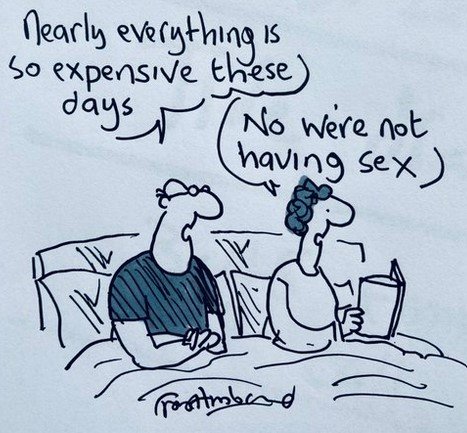 Nearly everything is
so expensive these
days
No we're not
having sex